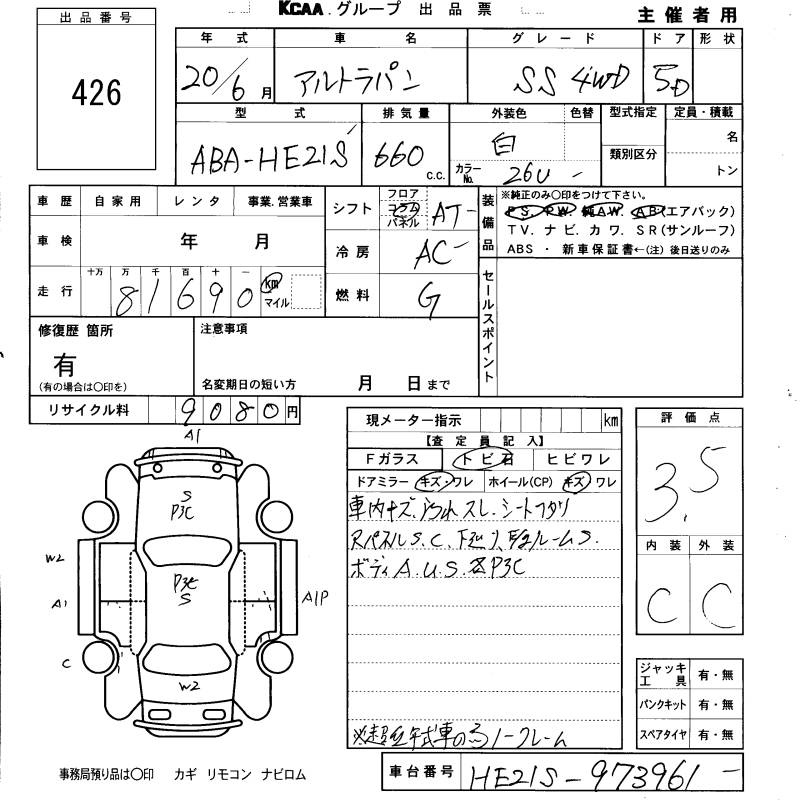 KCAA. グループ 出品票
主催者用
出品番号
426
年式 車名 グレード ドア 形状
20/6月 アルトラパン SS 4WD 5D
型式 排気量 外装色 色替 型式指定 定員・積載
ABA-HE21S 660 c.c. 白 類別区分 名
カラーNo. 26U - トン
車歴 自家用 レンタ 事業.営業車
シフト フロア コラム パネル AT-
装備品 ※純正のみ〇印をつけて下さい。
PS. PW. 純AW. AB(エアバック)
TV. ナビ. カワ. SR(サンルーフ)
ABS ・ 新車保証書←(注) 後日送りのみ
車検 年 月
冷房 AC-
走行 十万 万 千 百 十 一
81690 km マイル
燃料 G
セールスポイント
修復歴 箇所
有
(有の場合は〇印を)
注意事項
名変期日の短い方 月 日まで
リサイクル料 9080円
現メーター指示 km
【査定員記入】
Fガラス トビ石 ヒビワレ
ドアミラー キズ・ワレ ホイール(CP) キズ・ワレ
車内キズ.汚れ スレ.シートヘタリ
Rパネル S.C.
ボディ A.U.S. P3C
ノーフレーム
評価点
3.5
内装 外装
C C
ジャッキ工具 有・無
パンクキット 有・無
スペアタイヤ 有・無
A1
S
P3C
W2
P3C
S
A1
A1P
C
W2
事務局預り品は〇印 カギ リモコン ナビロム
車台番号 HE21S-973961 -